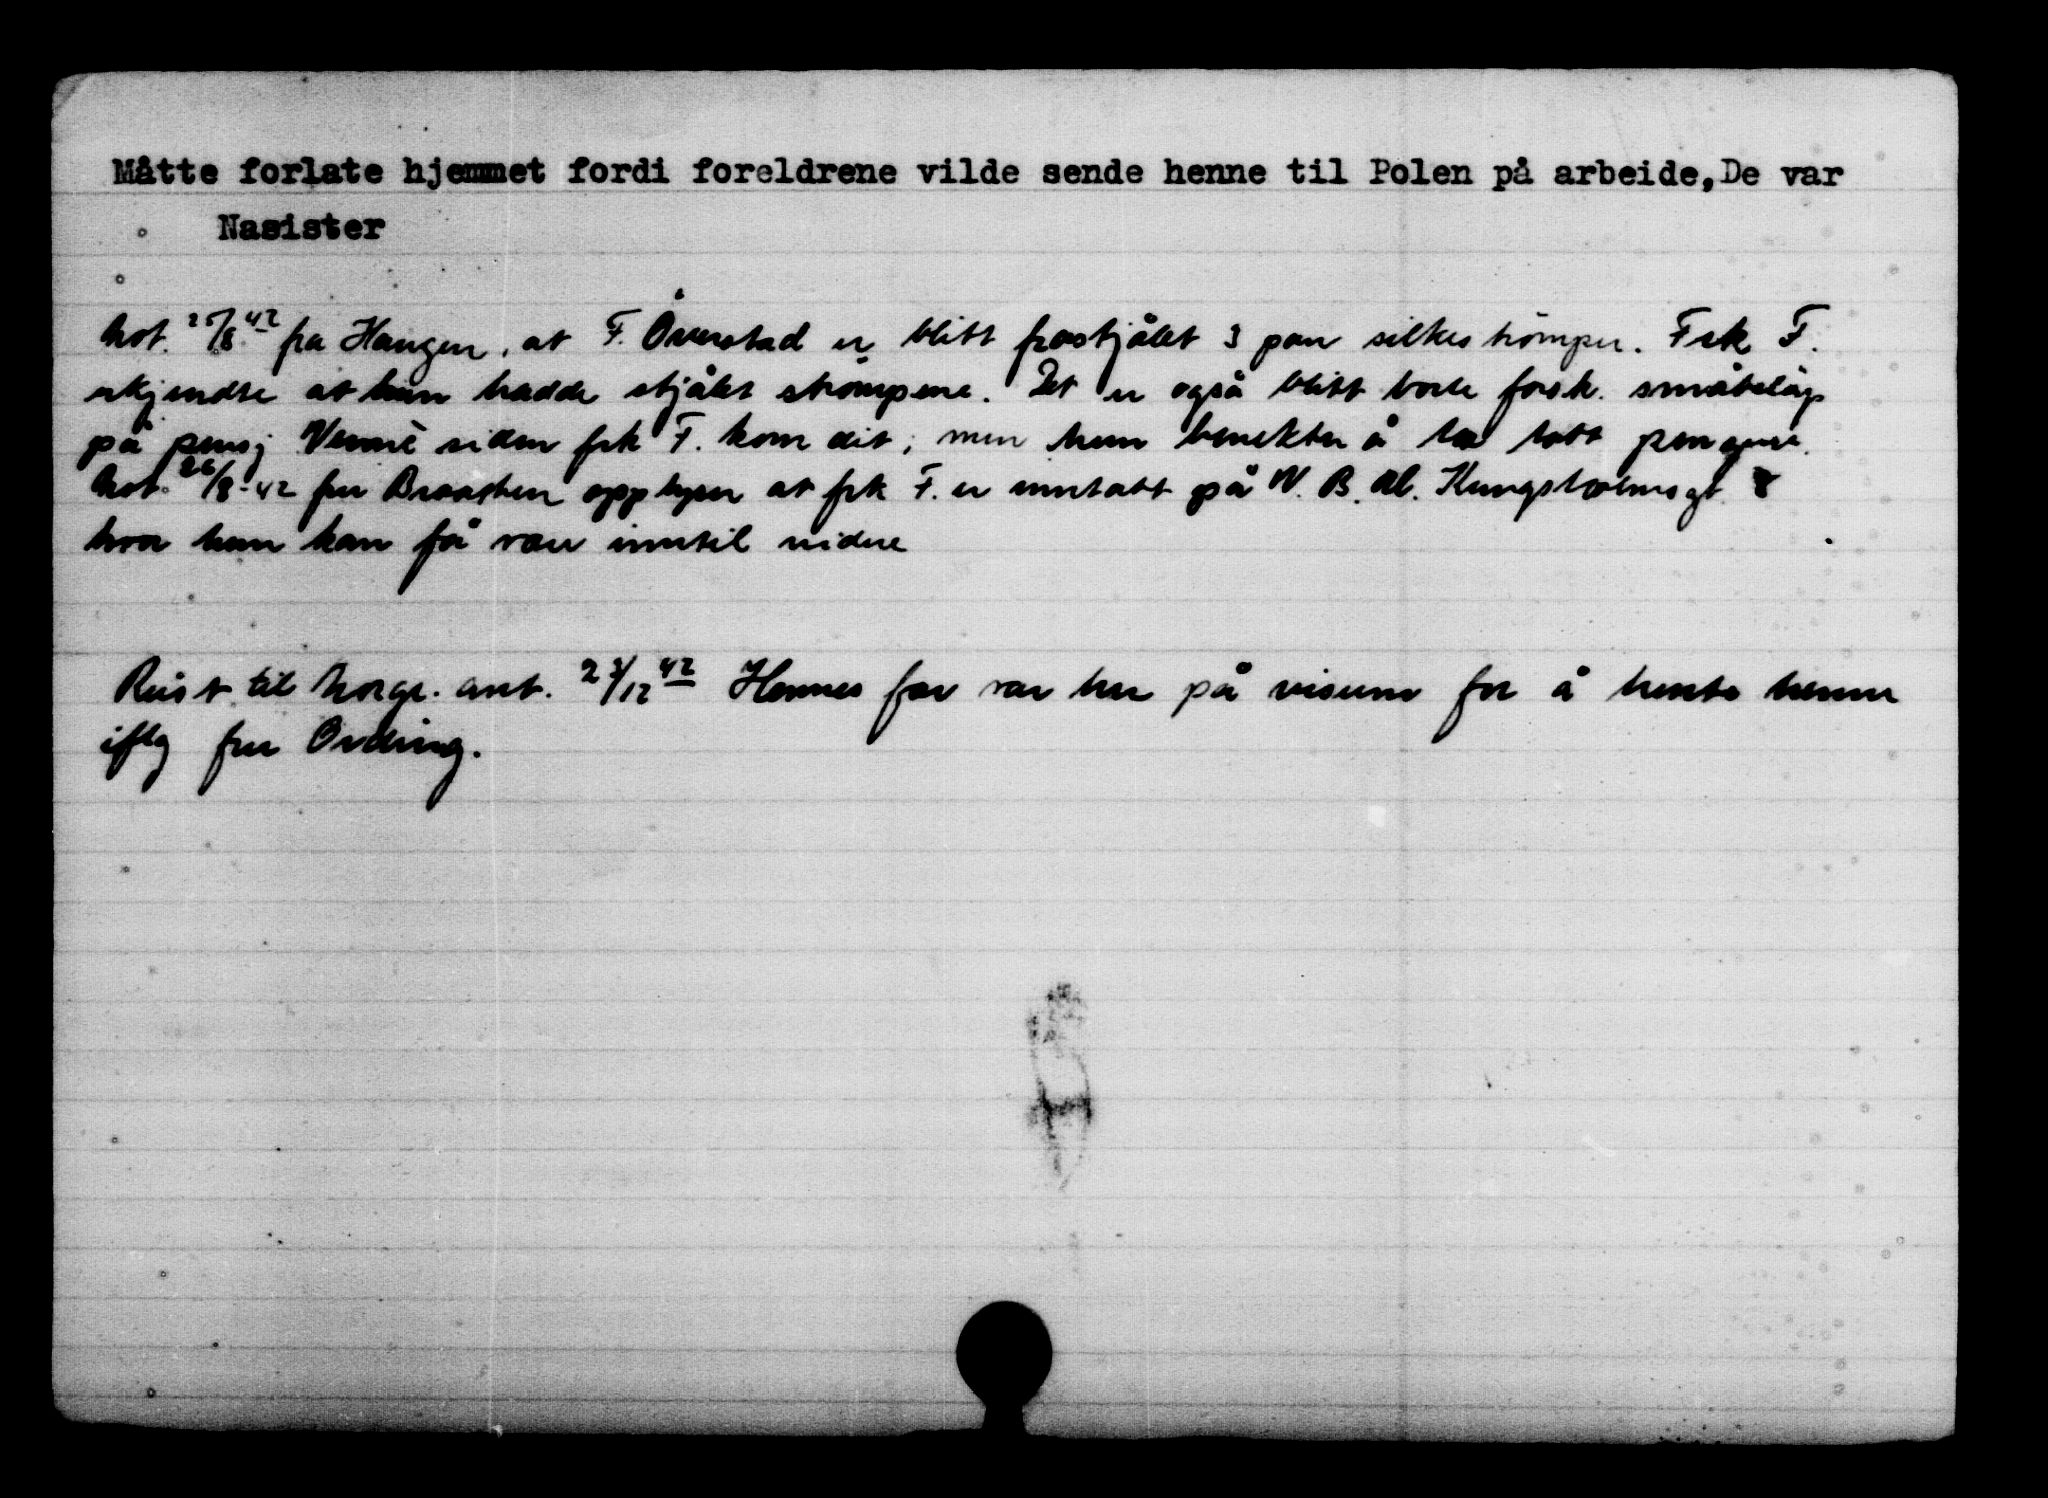 Måtte forlate hjemmet fordi foreldrene vilde sende henne til Polen på arbeide,De var
Nasister
Not. 25/8 42 fra Haugen, at F. Överstad er blitt frastjålet 3 par silkeströmper. Frk F.
erkjendte at hun hadde stjålet strömpene. Det er også blitt borte forsk. småbelöp
på pensj Venné siden frk F. kom dit, men hun benekter å ha tatt pengene.
Not. 26/8-42 fru Braathen opplyser at frk F. er inntatt på N. B. Al. Kungsholmsgt. 8
hvor hun kan få være inntil videre
Reist til Norge. ant. 23/12 42 Hennes far var her på visum for å hente henne
iflg fru Ording.